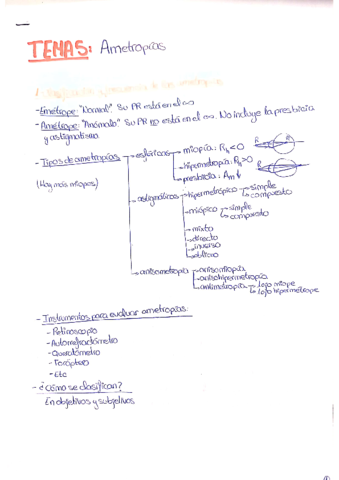 TEMA5: Ametropías
- Emétrope: "Normal" Su PR está en el ∞
- Amétrope: "Anómalo" Su PR no está en el ∞. No incluye la presbicia
y astigmatismo
- Tipos de ametropías → esféricas → miopía: Rh<0
→ hipermetropía: Rh>0
(Hay más miopes) → presbicia: Am↓
→ astigmáticos → hipermetrópico → simple
→ compuesto
→ miópico → simple
→ compuesto
→ mixto
→ directo
→ inverso
→ oblicuo
→ anisometropía → anisomiopía
→ anisohipermetropía
→ antimetropía → 1 ojo miope
→ 1 ojo hipermétrope
- Instrumentos para evaluar ametropías:
- Retinoscopio
- Autorrefractómetro
- Queratómetro
- Foróptero
- Etc
- ¿Cómo se clasifican?
En objetivos y subjetivos